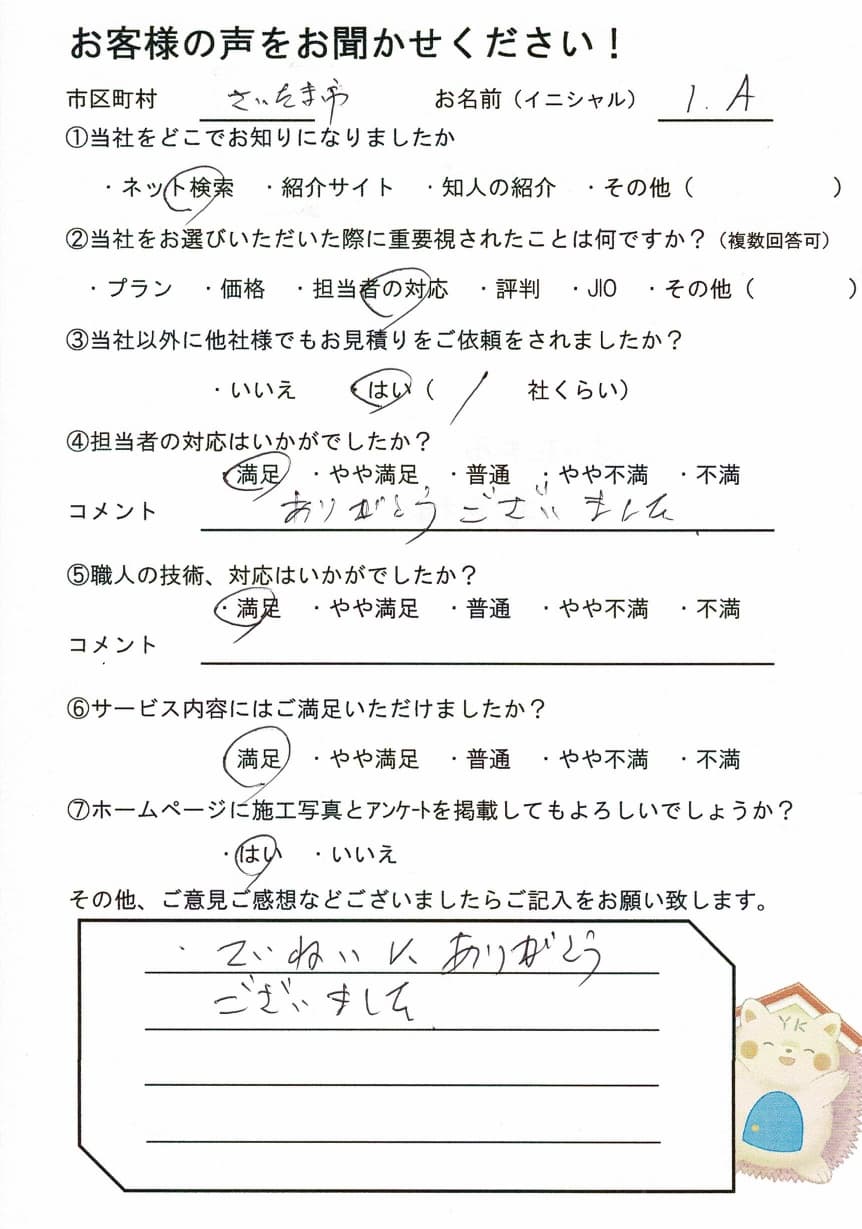 お客様の声をお聞かせください！
市区町村 さいたま市 お名前（イニシャル） I. A
①当社をどこでお知りになりましたか
・ネット検索 ・紹介サイト ・知人の紹介 ・その他（ ）
②当社をお選びいただいた際に重要視されたことは何ですか？（複数回答可）
・プラン ・価格 ・担当者の対応 ・評判 ・JIO ・その他（ ）
③当社以外に他社様でもお見積りをご依頼をされましたか？
・いいえ ・はい（ 社くらい）
④担当者の対応はいかがでしたか？
・満足 ・やや満足 ・普通 ・やや不満 ・不満
コメント ありがとうございました
⑤職人の技術、対応はいかがでしたか？
・満足 ・やや満足 ・普通 ・やや不満 ・不満
コメント
⑥サービス内容にはご満足いただけましたか？
満足 ・やや満足 ・普通 ・やや不満 ・不満
⑦ホームページに施工写真とｱﾝｹｰﾄを掲載してもよろしいでしょうか？
・はい ・いいえ
その他、ご意見ご感想などございましたらご記入をお願い致します。
・ていねいに ありがとう
ございました
YK